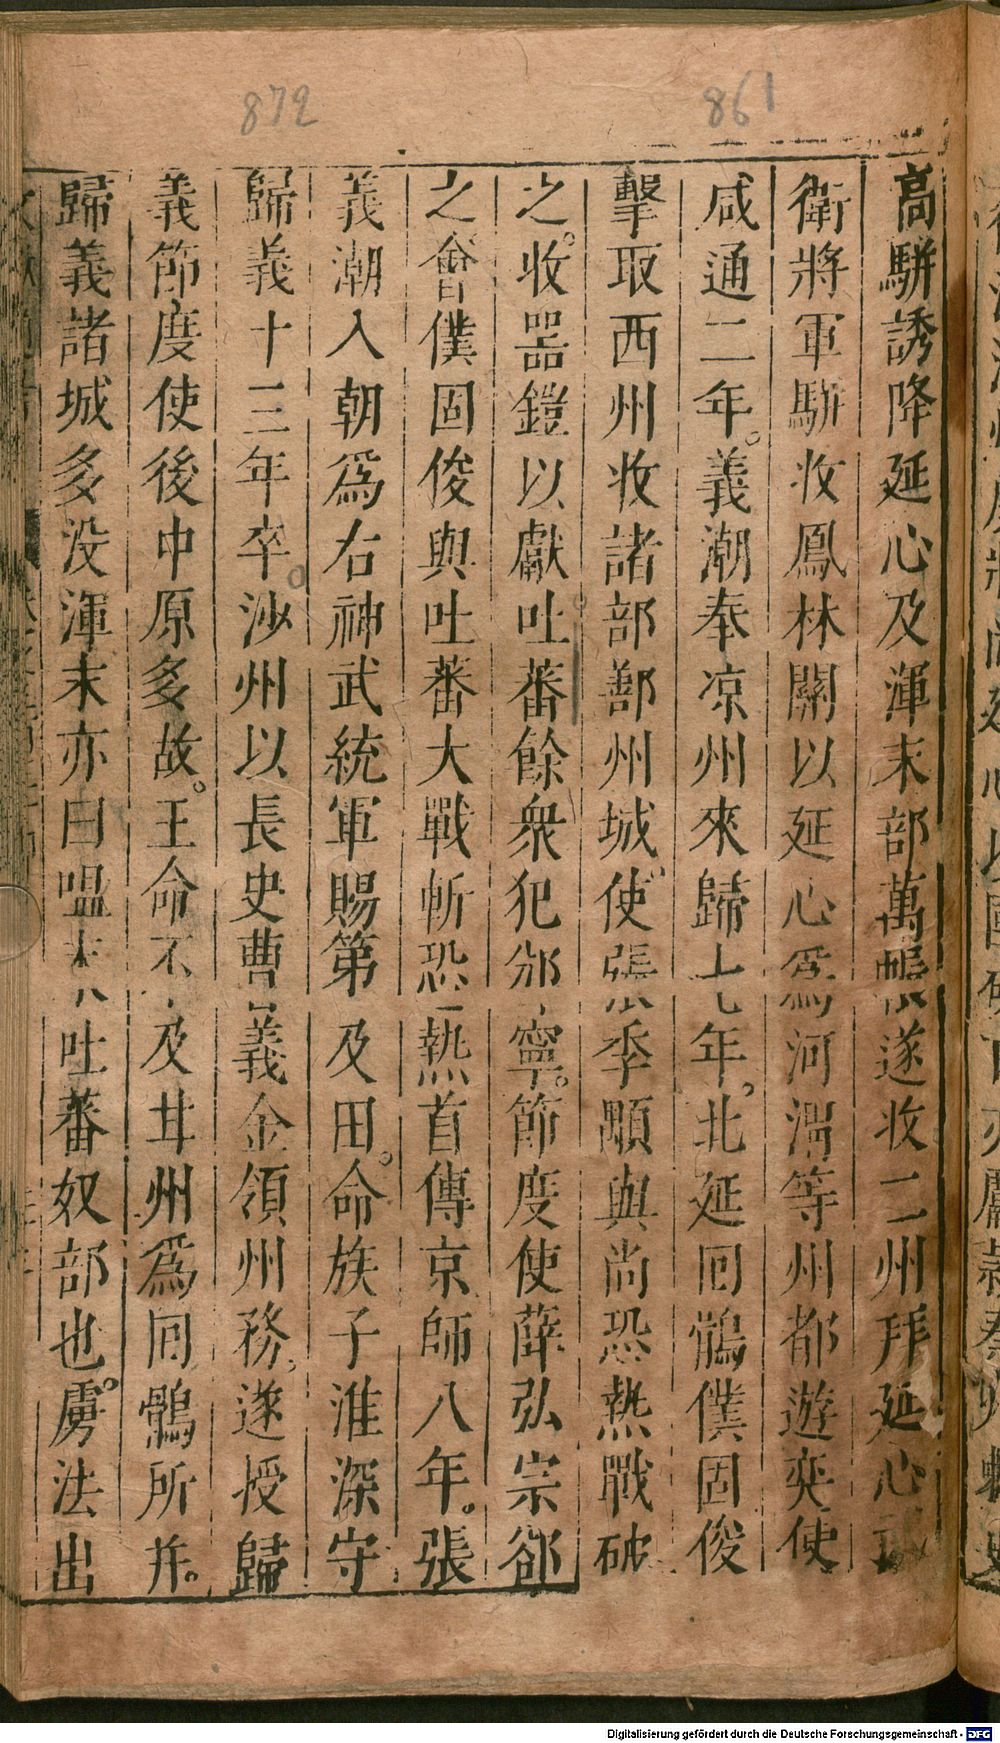 872
861
高駢誘降延心及渾末部萬帳遂收二州拜延心武
衛將軍駢收鳳林關以延心爲河渭等州都遊奕使
咸通二年。義潮奉凉州來歸七年。北延回鶻僕固俊
擊取西州收諸部鄯州城使張季顒與尚恐熱戰破
之。收器鎧以獻吐蕃餘衆犯邠寧。節度使薛弘宗郤
之會僕固俊與吐蕃大戰斬恐熱首傳京師八年。張
義潮入朝爲右神武統軍賜第及田。命族子淮深守
歸義十三年卒。沙州以長史曹義金領州務遂授歸
義節度使後中原多故。王命不及甘州爲回鶻所并。
歸義諸城多沒渾末亦曰嗢末吐蕃奴部也。虜法出
Digitalisierung gefördert durch die Deutsche Forschungsgemeinschaft - DFG